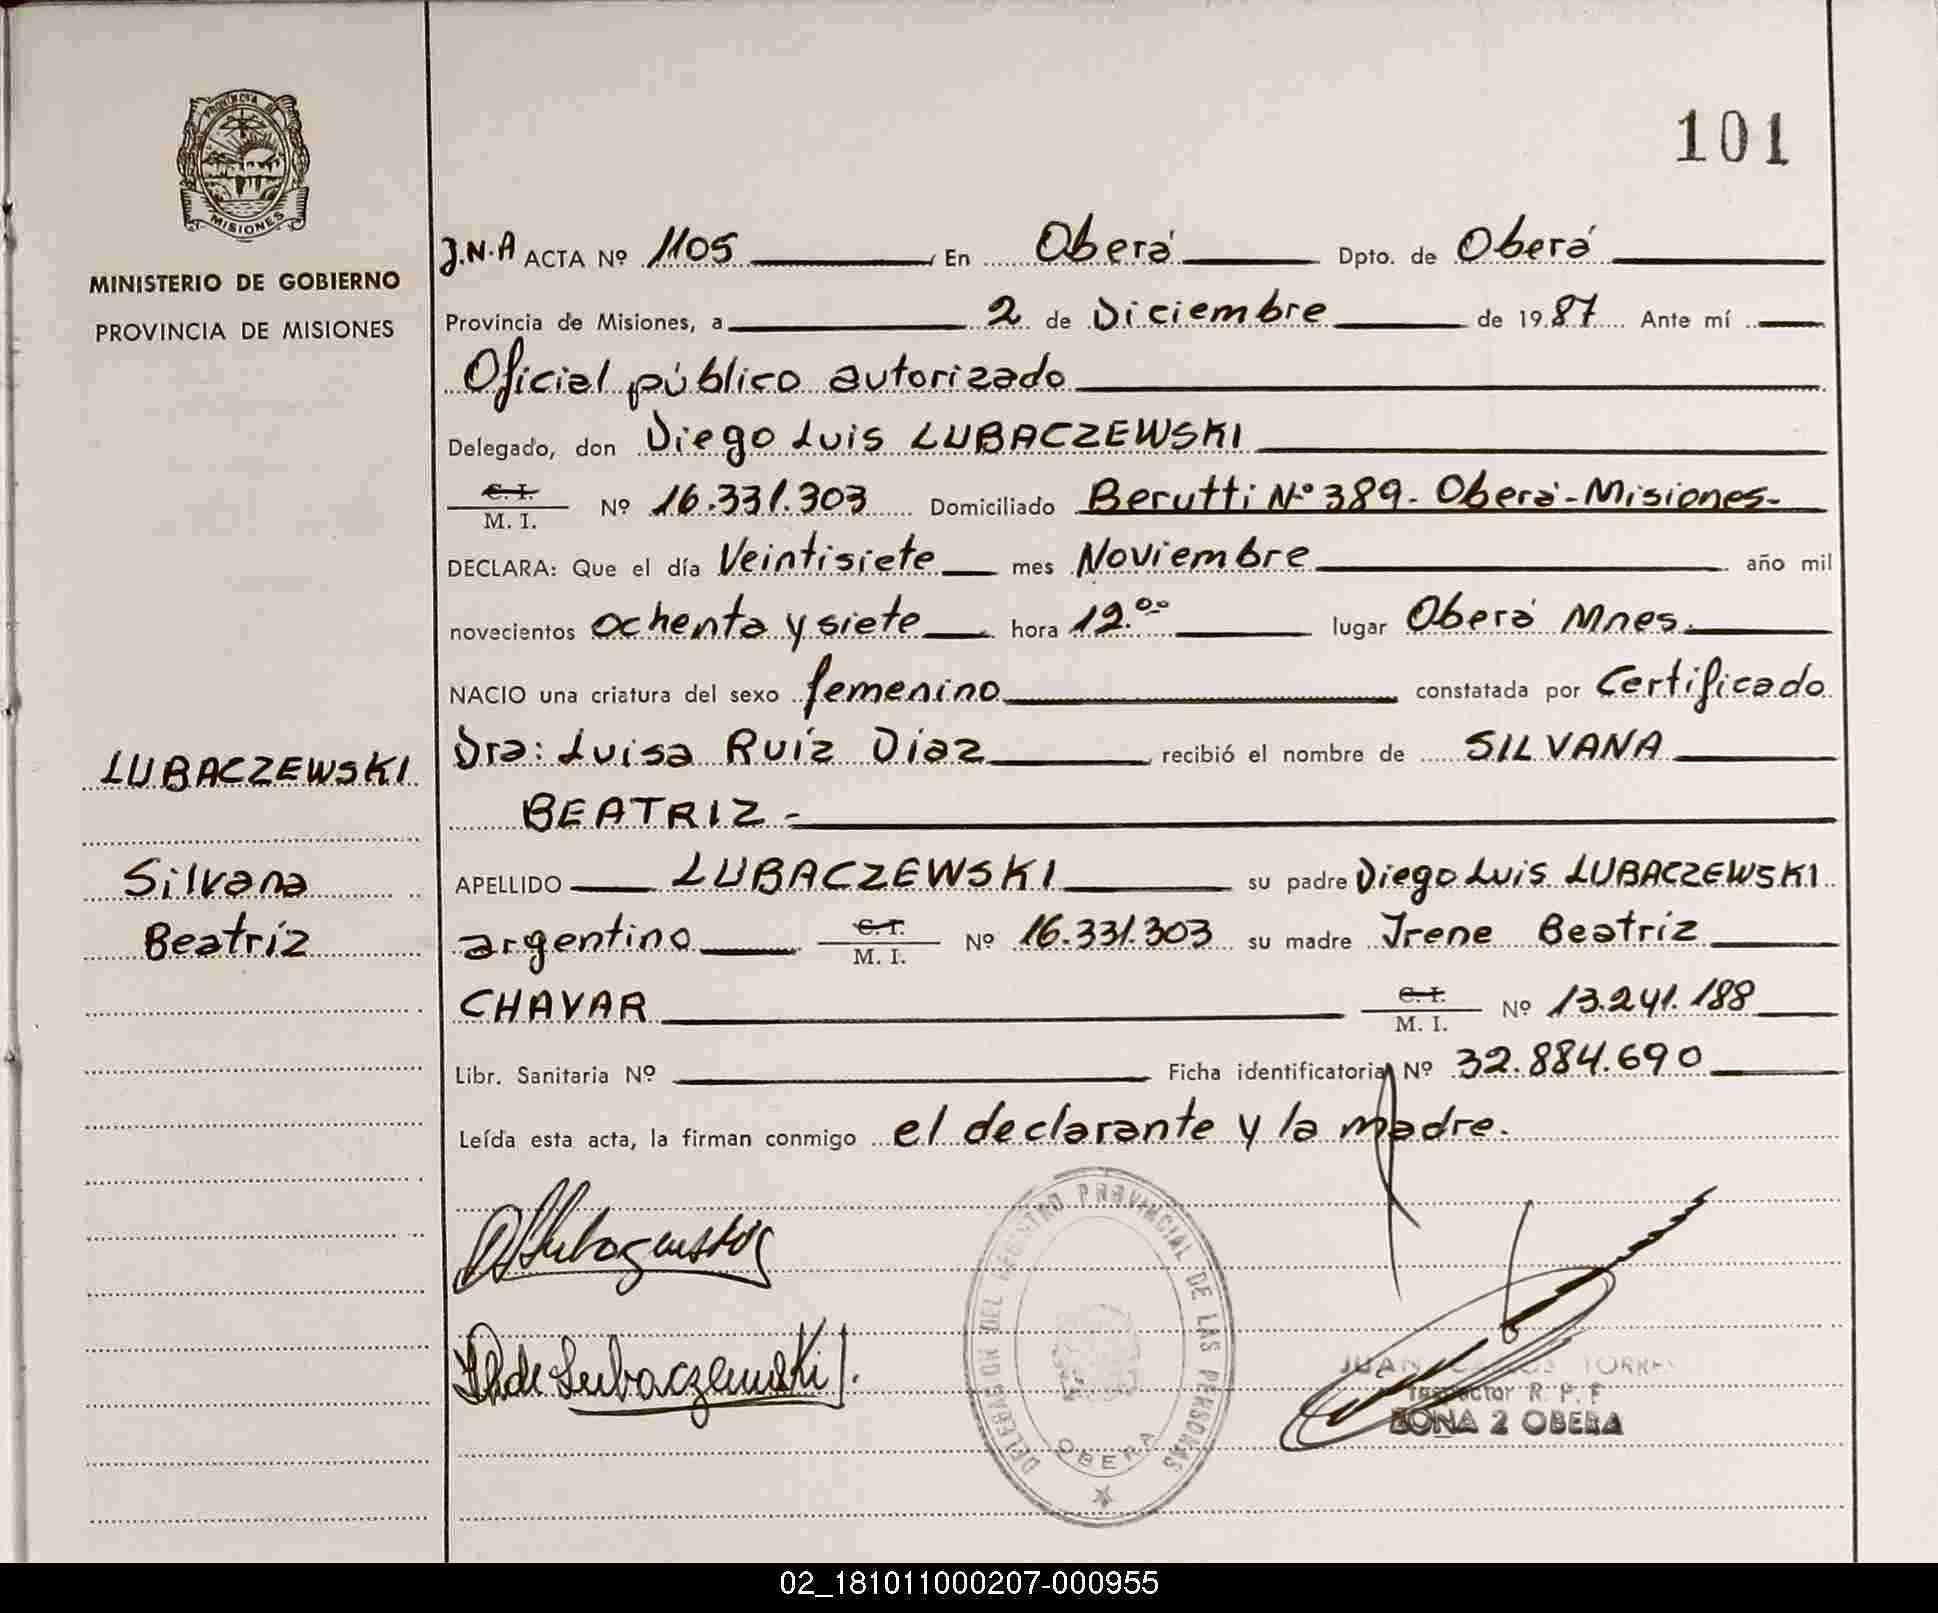 PROVINCIA DE
MISIONES
MINISTERIO DE GOBIERNO
PROVINCIA DE MISIONES
LUBACZEWSKI
Silvana
Beatríz
101
J.N.A ACTA Nº 1105 En Oberá Dpto. de Oberá
Provincia de Misiones, a 2 de Diciembre de 1987 Ante mí
Oficial público autorizado
Delegado, don Diego Luis LUBACZEWSKI
C. I.
M. I. Nº 16.331.303 Domiciliado Berutti Nº 389- Oberá-Misiones-
DECLARA: Que el día Veintisiete mes Noviembre año mil
novecientos ochenta y siete hora 12.00 lugar Oberá Mnes.
NACIO una criatura del sexo femenino constatada por Certificado
Dra: Luisa Ruíz Díaz recibió el nombre de SILVANA
BEATRIZ-
APELLIDO LUBACZEWSKI su padre Diego Luis LUBACZEWSKI
argentino C. I. M. I. Nº 16.331.303 su madre Irene Beatríz
CHAVAR C. I. M. I. Nº 13.241.188
Libr. Sanitaria Nº Ficha identificatoria Nº 32.884.690
Leída esta acta, la firman conmigo el declarante y la madre.
DELEGACION DEL REGISTRO PROVINCIAL DE LAS PERSONAS
OBERA
de Lubaczewski
JUAN CARLOS TORRES
Inspector R. P. P
ZONA 2 OBERA
02_181011000207-000955